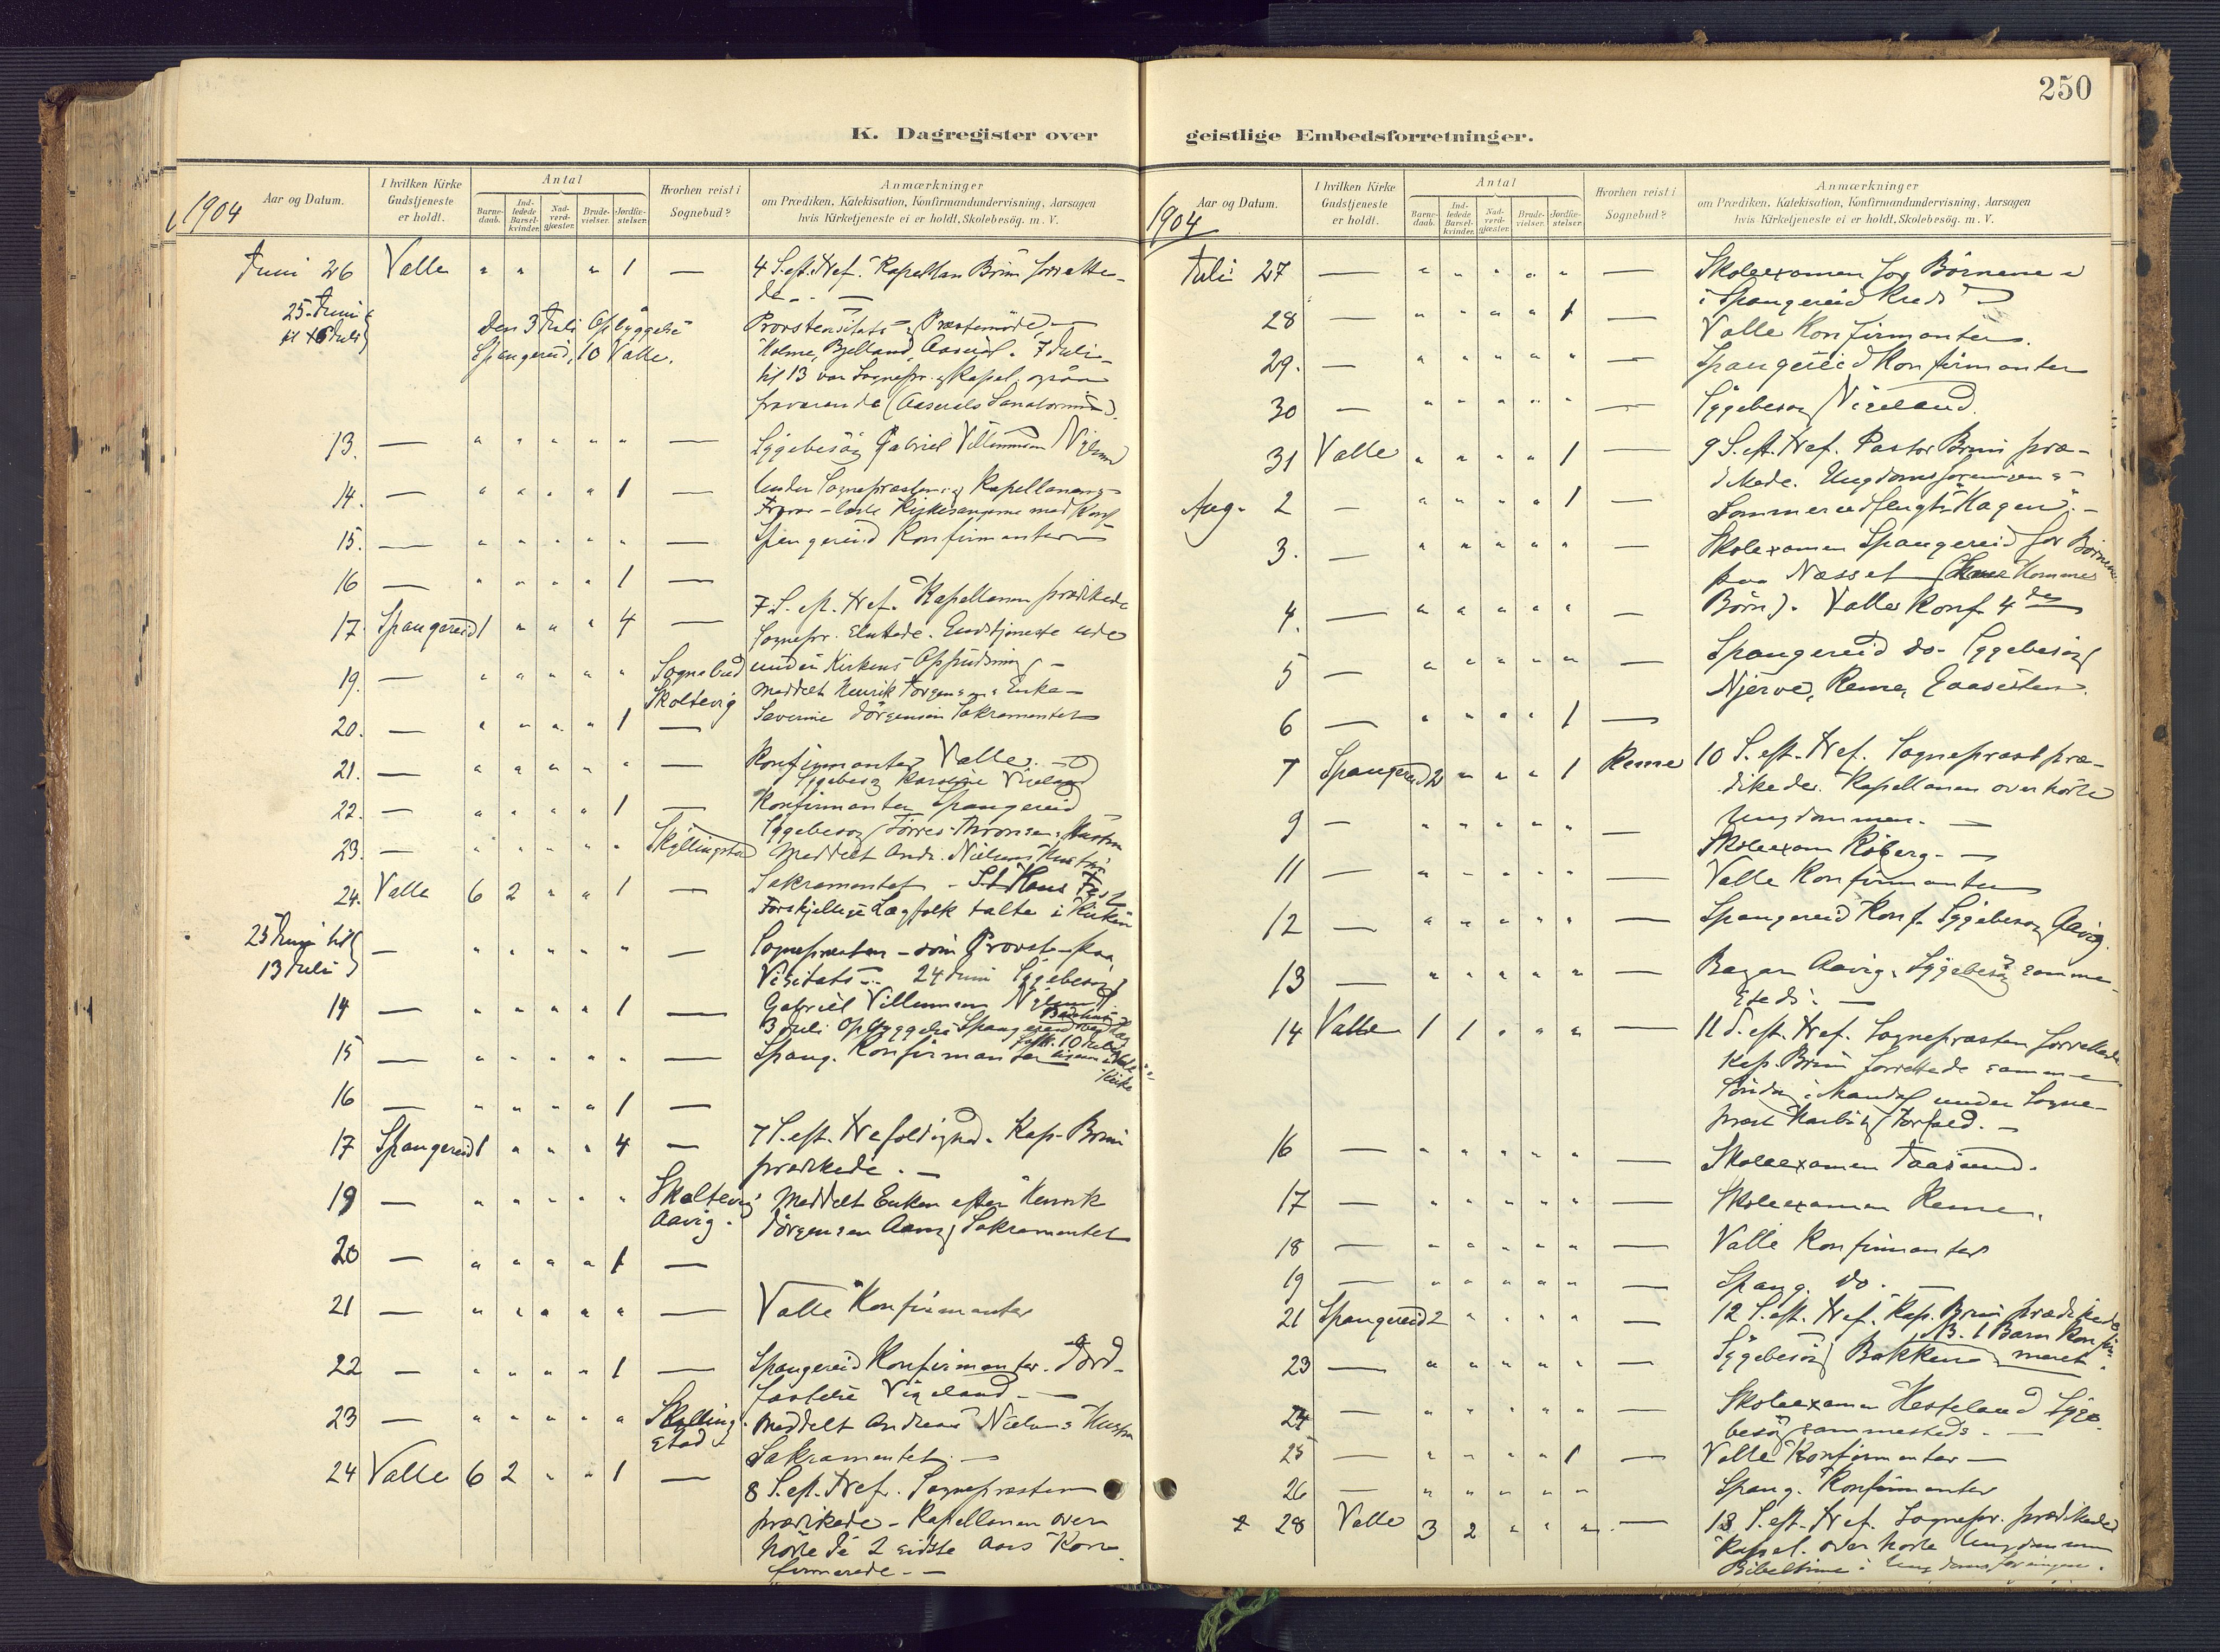 K. Dagregister over
1904
Aar og Datum.
I hvilken Kirke Gudstjeneste er holdt.
Antal
Barne-daab.
Ind-ledede Barsel-kvinder.
Nad-verd-gjæster.
Brude-vielser.
Jordfæ-stelser.
Hvorhen reist i Sognebud?
Anmærkninger
om Prædiken, Katekisation, Konfirmandundervisning, Aarsagen
hvis Kirketjeneste ei er holdt, Skolebesög. m. V.
Juni 26 Valle " " " 1 — 4 S. eft. Tref. Kapellan Brun forrette-
de. —
25 Juni
til 16 Juli
Den 3 Juli Opbyggelse
Spangereid, 10 Valle.
Provstevisitats- Præstemöde
Holme, Bjelland, Aaseral. 7 Juli
til 13 var Sognepr. og Kapel. ogsaa
fraværende (Aaserals Sanatorium).
13. — " " " " " — Sygebesög Gabriel Villumsen
14. — " " " " 1 — Under Sognepræsten og Kapellanens
Fravær læste Kirkesangerne med Konf.
15. — " " " " " — Spangereid Konfirmanter
16 — " " " " 1 —
17. Spangereid 1 " " " 4 — 7 S. eft. Tref. Kapellanen prædikede
Sognepr. sluttede. Gudstjeneste ude
under Kirkens Oppudsning
19. — " " " " " Sognebud Skoltevig Meddelt Henrik Jörgensens Enke
Severine Jörgensen Sakramentet
20. — " " " " 1 —
21. — " " " " " Konfirmanter Valle. —
Sygebesög
22. — " " " " 1 — Konfirmanter Spangereid
Sygebesög Hustru
23. — " " " " " Skyllingstad Meddelt Andr. Nielsens Hustru
Sakramentet
24. Valle 6 2 " " 1 — St Hans Fest
Forskjellige Lægfolk talte i Kirken
25 Juni til
13 Juli
— " " " " " — Sognepræsten som Provst paa
Visitats. 24 Juni Sygebesög
Gabriel Villumsen
3 Juli Opbyggelse Spangereid
14 — " " " " 1 —
15 — " " " " " — Spang. Konfirmanter
16 — " " " " 1 —
17 Spangereid 1 " " " 4 — 7 S. eft. Trefoldighed. Kap. Brun
prædikede. —
19 — " " " " " Skoltevig Aavig. Meddelt Enken efter Henrik
Jörgensen Aavig Sakramentet
20 — " " " " 1 —
21 — " " " " " — Valle Konfirmanter
22 — " " " " 1 — Spangereid Konfirmanter. Jord-
fæstelse Vigeland. —
23 — " " " " " Skylling-stad Meddelt Andreas Nielsens Hustru
Sakramentet. —
24 Valle 6 2 " " 1 — 8 S. eft. Tref. Sognepræsten
prædikede. Kapellanen over-
hörte de 2 sidste Aars Kon-
firmerede. —
250
geistlige Embedsforretninger.
1904
Aar og Datum.
I hvilken Kirke Gudstjeneste er holdt.
Antal
Barne-daab.
Ind-ledede Barsel-kvinder.
Nad-verd-gjæster.
Brude-vielser.
Jordfæ-stelser.
Hvorhen reist i Sognebud?
Anmærkninger
om Prædiken, Katekisation, Konfirmandundervisning, Aarsagen
hvis Kirketjeneste ei er holdt, Skolebesög. m. V.
Juli 27 — " " " " " — Skoleexamen for Börnene
i Spangereid Kreds
28 — " " " " 1 — Valle Konfirmanter.
29. — " " " " " — Spangereid Konfirmanter
30 — " " " " " — Sygebesög Vigeland.
31 Valle " " " " 1 — 9 S. eft. Tref. Pastor Brun præ-
dikede. Ungdomsforeningens
Aug. 2 — " " " " 1 — Sommerudflugt "Hagen".
3. — " " " " " — Skoleexamen Spangereid for Börnene
paa Næsset
4. — " " " " " — Börn). Valle Konf.
5 — " " " " " — Spangereid do. Sygebesög
Njerve, Reme,
6 — " " " " 1 —
7 Spangereid 2 " " " 1 Reme 10 S. eft. Tref. Sognepræst præ-
dikede. Kapellanen overhörte
Ungdommen. —
9 — " " " " " — Skoleexam Röberg. —
11 — " " " " " — Valle Konfirmanter
12 — " " " " " — Spangereid Konf. Sygebesög Aavig.
13 — " " " " " — Bazar Aavig. Sygebesög samme-
steds. —
14 Valle 1 1 " " " — 11 S. eft. Tref. Sognepræsten forrettede
Kap. Brun forrettede samme
Söndag i Mandal under Sogne-
præst Forfald. —
16 — " " " " " — Skoleexamen Taasund.
17 — " " " " " — Skoleexamen Reme.
18 — " " " " " — Valle Konfirmanter
19 — " " " " " — Spang. do. —
21 Spangereid 2 " " " " — 12 S. eft. Tref. Kap. Brun prædikede
NB. 1 Barn konfir-
meret.
23 — " " " " " — Sygebesög Bakkene
24 — " " " " " — Skoleexamen Hesteland Syge-
besög sammesteds. —
25 — " " " " 1 — Valle Konfirmanter —
26 — " " " " " Spang. Konfirmanter
28 Valle 3 2 " " " — 13 S. eft. Tref. Sognepr. prædikede
Kapel. overhörte Ungdommen
Bibeltime i Ungdomsforeningen.